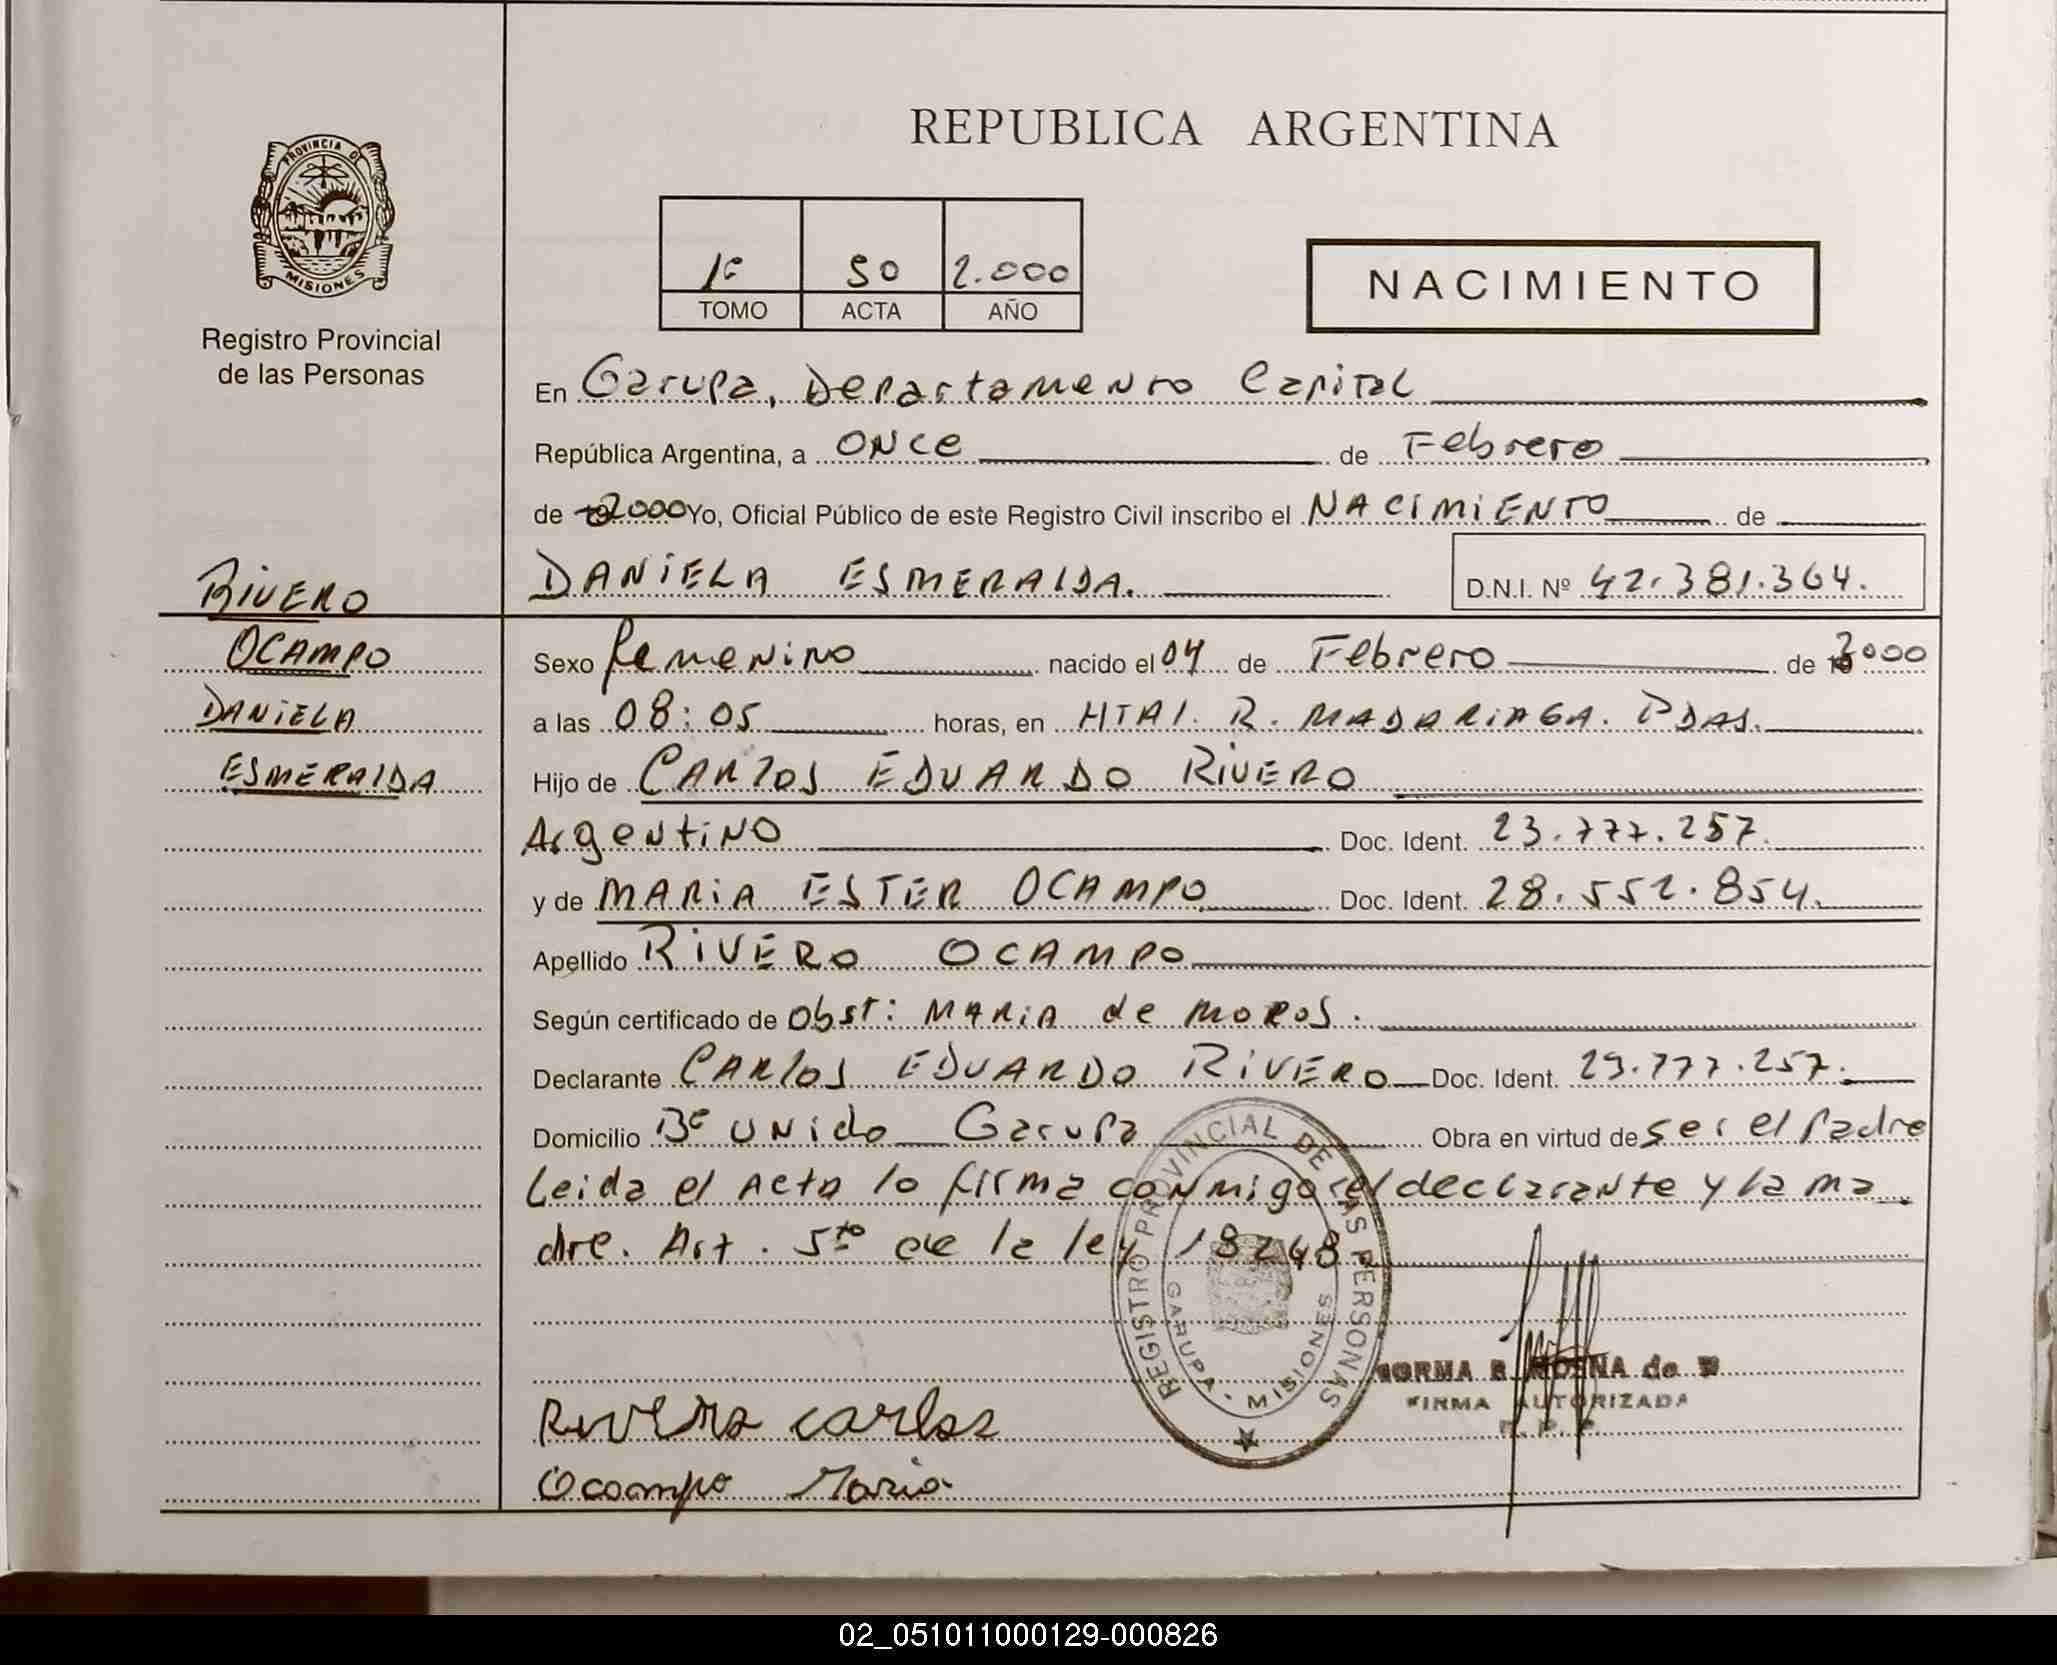 REPUBLICA ARGENTINA
PROVINCIA DE
MISIONES
Registro Provincial
de las Personas
1º 50 2.000
TOMO ACTA AÑO
NACIMIENTO
En Garupa, Departamento Capital
República Argentina, a ONCE de Febrero
de 2000 Yo, Oficial Público de este Registro Civil inscribo el NACIMIENTO de
DANIELA ESMERALDA. D.N.I. Nº 42.381.364.
RIVERO
OCAMPO
DANIELA
ESMERALDA
Sexo femenino nacido el 04 de Febrero de 2000
a las 08:05 horas, en HTAl. R. MADARIAGA. PDAS.
Hijo de CARlOS EDUARDO RIVERO
Argentino Doc. Ident. 23.777.257.
y de MARIA ESTER OCAMPO Doc. Ident. 28.552.854.
Apellido RIVERO OCAMPO
Según certificado de Obst: MARIA de
Declarante CARlOS EDUARDO RIVERO Doc. Ident. 23.777.257.
Domicilio Bº UNido Garupa Obra en virtud de ser el Padre
Leida el Acta lo firma conmigo el declarante y la ma
dre. Art. 5to de la ley 18248
REGISTRO PROVINCIAL DE LAS PERSONAS
GARUPA - MISIONES
NORMA B. de
FIRMA AUTORIZADA
Rivero Carlos
Ocampo Maria
02_051011000129-000826